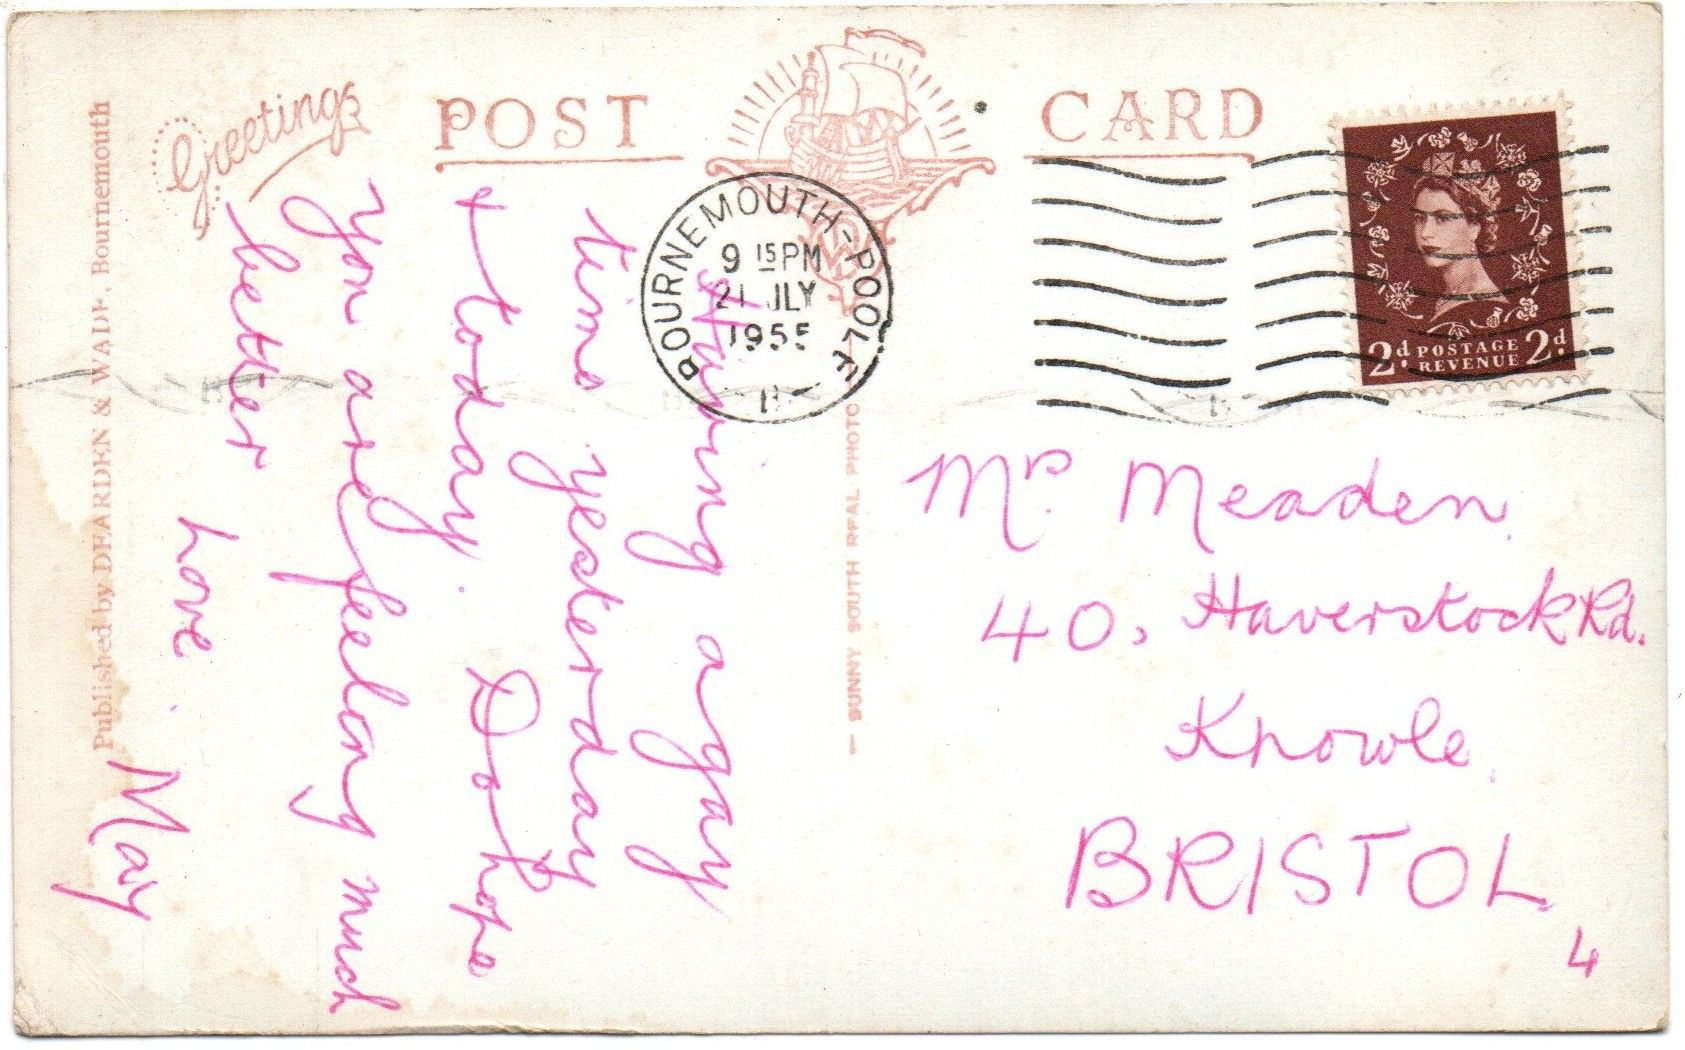 Greetings
POST CARD
Published by DEARDEN & WADE, Bournemouth
SUNNY SOUTH REAL PHOTO
BOURNEMOUTH-POOLE
9 15 PM
21 JLY
1955
2d POSTAGE REVENUE 2d
Having a gay
time yesterday
& today. Do hope
you are feeling much
better
Love
May
Mrs Meaden
40, Haverstock Rd.
Knowle
BRISTOL
4